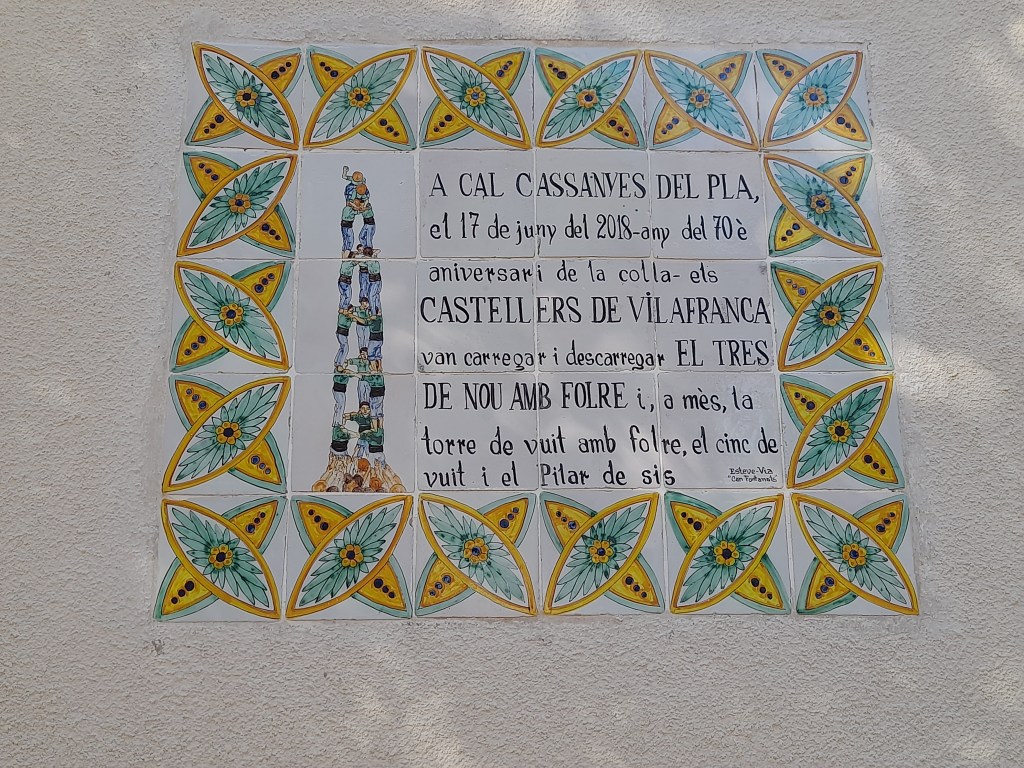 A CAL CASSANYES DEL PLA,
el 17 de juny del 2018-any del 70è
aniversari de la colla- els
CASTELLERS DE VILAFRANCA
van carregar i descarregar EL TRES
DE NOU AMB FOLRE i, a mès, la
torre de vuit amb folre, el cinc de
vuit i el Pilar de sis
Esteve-Via